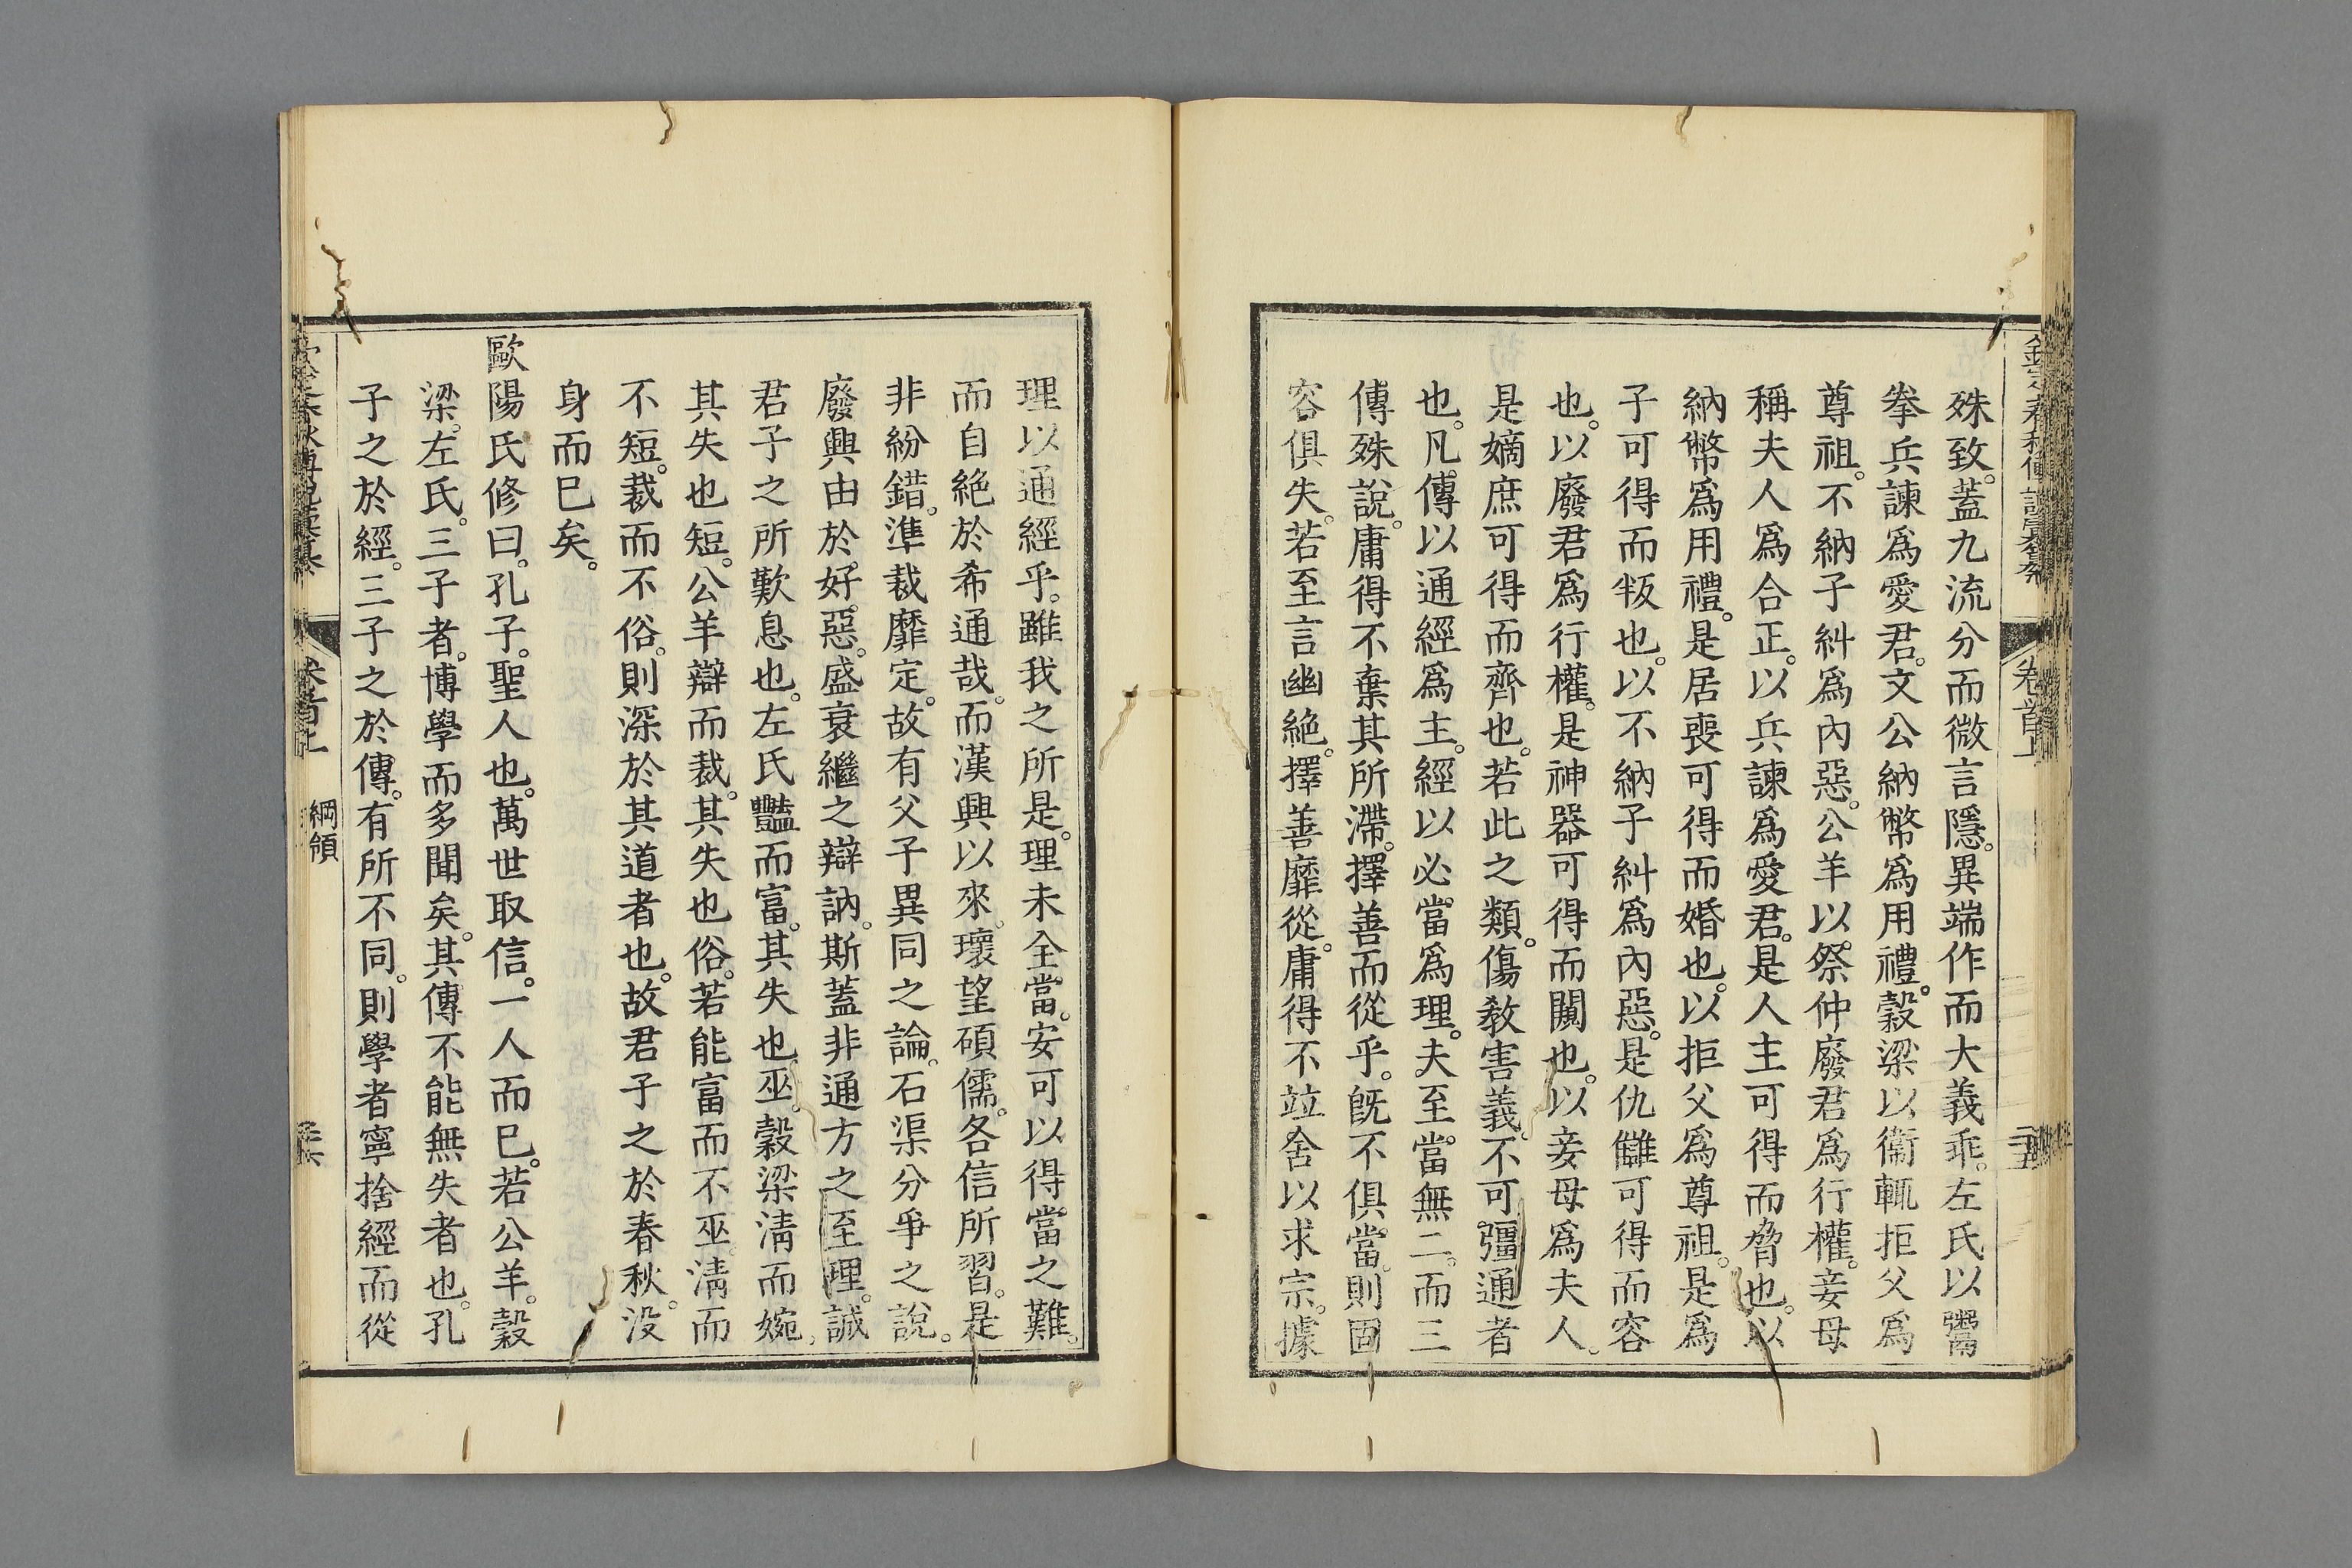 殊致。蓋九流分而微言隱。異端作而大義乖。左氏以鬻
拳兵諫爲愛君。文公納幣爲用禮。穀梁以衞輒拒父爲
尊祖。不納子糾爲內惡。公羊以祭仲廢君爲行權。妾母
稱夫人爲合正。以兵諫爲愛君。是人主可得而脅也。以
納幣爲用禮。是居喪可得而婚也。以拒父爲尊祖。是爲
子可得而叛也。以不納子糾爲內惡。是仇讎可得而容
也。以廢君爲行權。是神器可得而闚也。以妾母爲夫人。
是嫡庶可得而齊也。若此之類。傷敎害義。不可彊通者
也。凡傳以通經爲主。經以必當爲理。夫至當無二。而三
傳殊說。庸得不棄其所滯。擇善而從乎。旣不俱當。則固
容俱失。若至言幽絕。擇善靡從。庸得不竝舍以求宗。據
理以通經乎。雖我之所是。理未全當。安可以得當之難。
而自絕於希通哉。而漢興以來。瓌望碩儒。各信所習。是
非紛錯。準裁靡定。故有父子異同之論。石渠分爭之說。
廢興由於好惡。盛衰繼之辯訥。斯蓋非通方之至理。誠
君子之所歎息也。左氏豔而富。其失也巫。穀梁淸而婉。
其失也短。公羊辯而裁。其失也俗。若能富而不巫。淸而
不短。裁而不俗。則深於其道者也。故君子之於春秋。没
身而巳矣。
歐陽氏修曰。孔子。聖人也。萬世取信。一人而巳。若公羊。穀
梁。左氏。三子者。博學而多聞矣。其傳不能無失者也。孔
子之於經。三子之於傳。有所不同。則學者寧捨經而從
卷首上
綱領